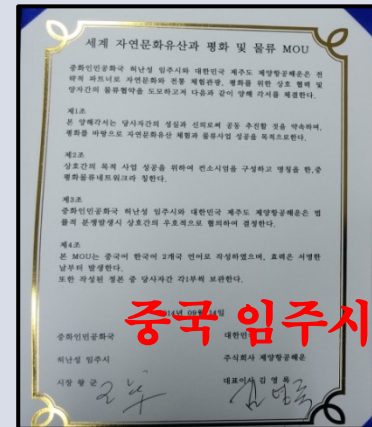 세계 자연문화유산과 평화 및 물류 MOU
중화인민공화국 허난성 임주시와 대한민국 제주도 제양항공해운은 전
략적 파트너로 자연문화와 전통 체험관광, 평화를 위한 상호 협력 및
양자간의 물류협약을 도모하고저 다음과 같이 양해 각서를 체결한다.
제1조
본 양해각서는 당사자간의 성실과 신의로써 공동 추진할 것을 약속하며,
평화를 바탕으로 자연문화유산 체험과 물류사업 성공을 목적으로한다.
제2조
상호간의 목적 사업 성공을 위하여 컨소시엄을 구성하고 명칭을 한,중
평화물류네트워크라 칭한다.
제3조
중화인민공화국 허난성 임주시와 대한민국 제주도 제양항공해운은 법
률적 분쟁발생시 상호간의 우호적으로 협의하여 결정한다.
제4조
본 MOU는 중국어 한국어 2개국 언어로 작성하였으며, 효력은 서명한
날부터 발생한다.
또한 작성된 정본 중 당사자간 각1부씩 보관한다.
중국 임주시
중화인민공화국
허난성 임주시
주식회사 제양항공해운
시장 왕 군
대표이사 김 영 록